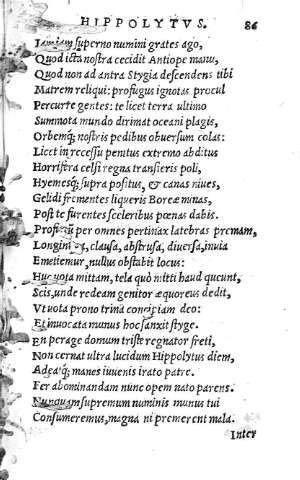 HIPPOLYTVS. 86
Iamiam superno numini grates ago,
Quod icta nostra cecidit Antiope manu,
Quod non ad antra Stygia descendens tibi
Matrem reliqui: profugus ignotas procul
Percurre gentes: te licet terra ultimo
Summota mundo dirimat oceani plagis,
Orbemq; nostris pedibus obuersum colas:
Licet in recessu penitus extremo abditus
Horrifera celsi regna transieris poli,
Hyemesq; supra positus, & canas niues,
Gelidi frementes liqueris Boreæ minas,
Post te furentes sceleribus pœnas dabis.
Profugū per omnes pertinax latebras premam,
Longinqua, clausa, abstrusa, diuersa, inuia
Emetiemur, nullus obstabit locus:
Huc uota mittam, tela quò mitti haud queunt,
Scis, unde redeam genitor æquoreus dedit,
Vt uota prono trina concipiam deo:
Et inuocata munus hoc sanxit styge.
En perage donum triste regnator freti,
Non cernat ultra lucidum Hippolytus diem,
Adeatq; manes iuuenis irato patre.
Fer abominandam nunc opem nato parens.
Nunquam supremum numinis munus tui
Consumeremus, magna ni premerent mala.
Inter